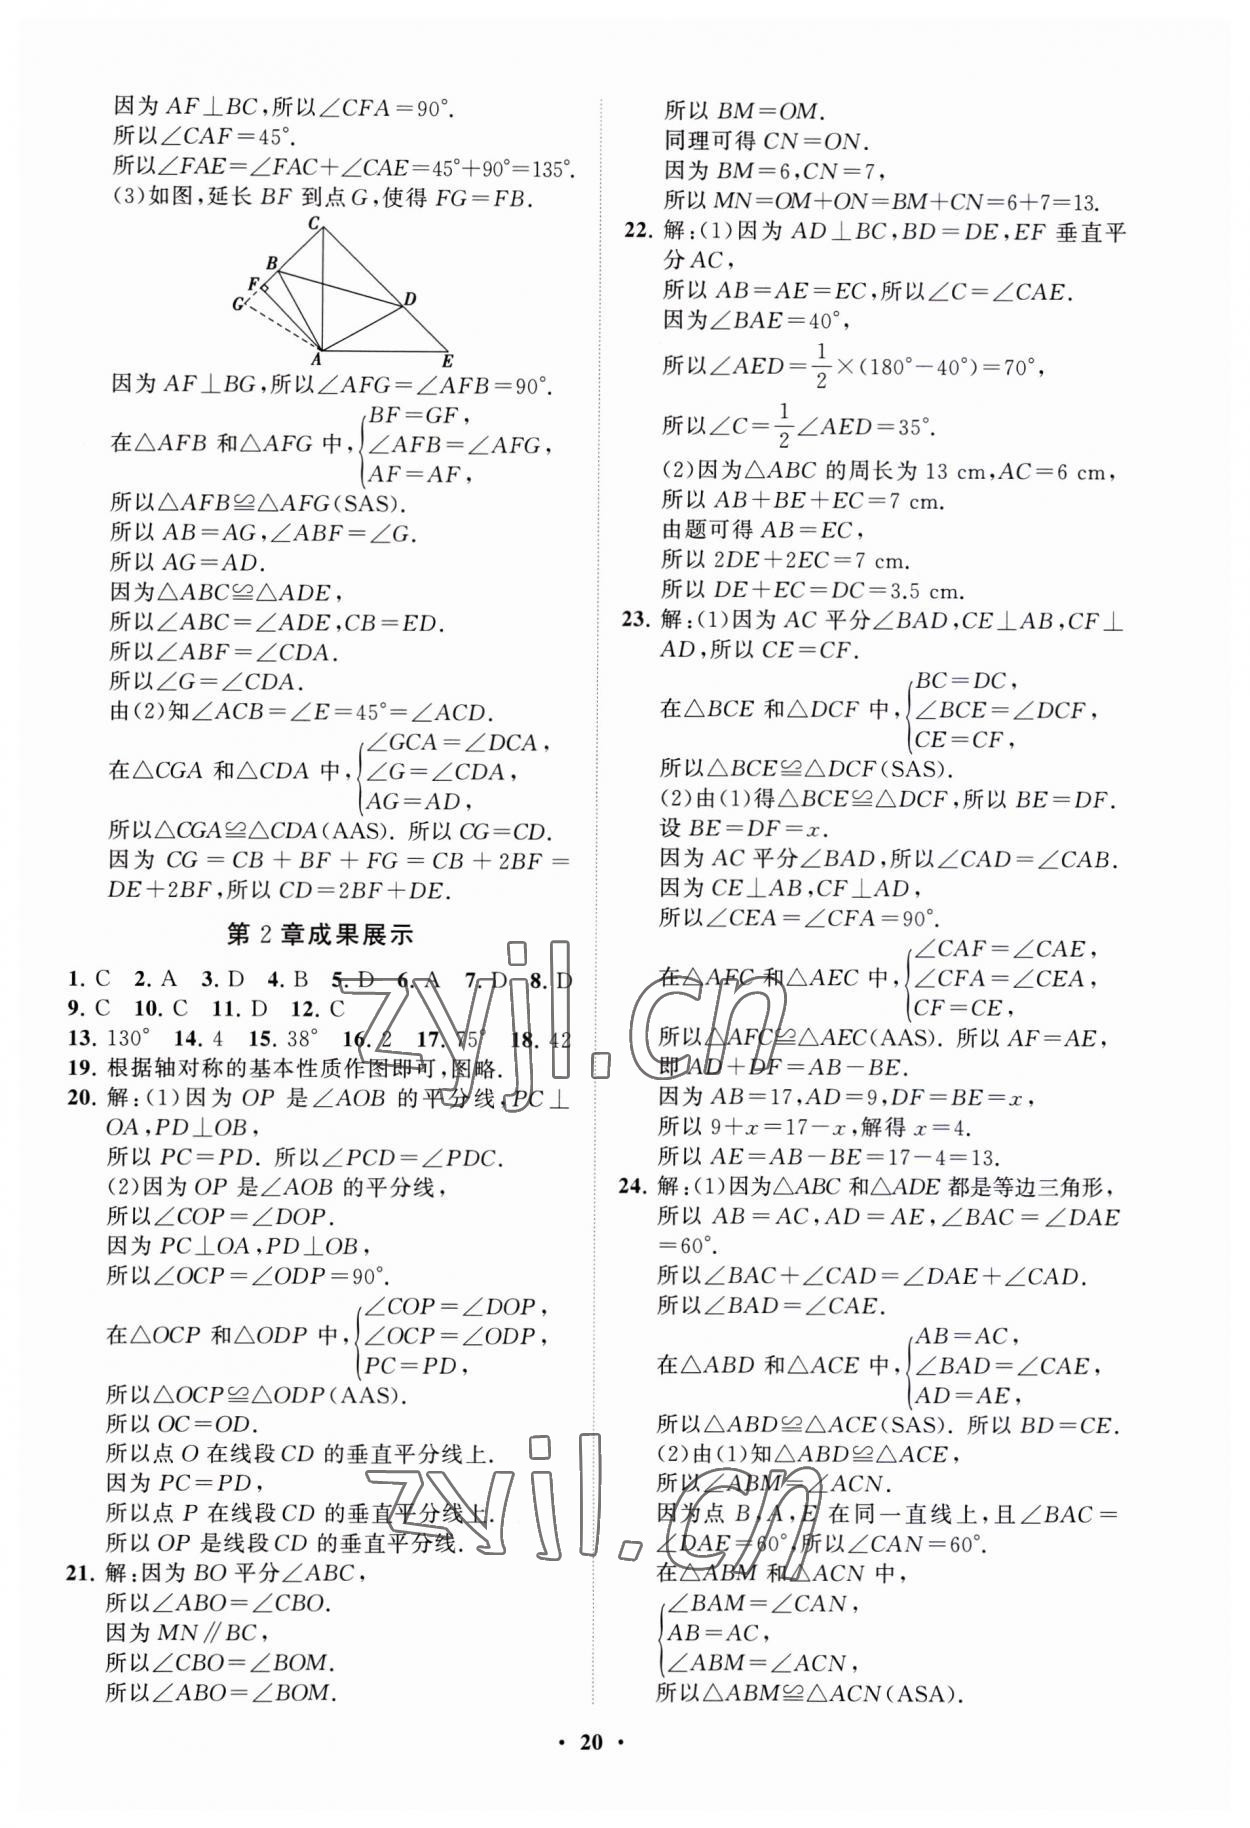 因为 AF⊥BC,所以∠CFA=90°.
所以∠CAF=45°.
所以∠FAE=∠FAC+∠CAE=45°+90°=135°.
(3)如图,延长 BF 到点 G,使得 FG=FB.
C
B
F
G
D
A
E
因为 AF⊥BG,所以∠AFG=∠AFB=90°.
BF=GF,
在△AFB 和△AFG 中,{∠AFB=∠AFG,
AF=AF,
所以△AFB≌△AFG(SAS).
所以 AB=AG,∠ABF=∠G.
所以 AG=AD.
因为△ABC≌△ADE,
所以∠ABC=∠ADE,CB=ED.
所以∠ABF=∠CDA.
所以∠G=∠CDA.
由(2)知∠ACB=∠E=45°=∠ACD.
∠GCA=∠DCA,
在△CGA 和△CDA 中,{∠G=∠CDA,
AG=AD,
所以△CGA≌△CDA(AAS). 所以 CG=CD.
因为 CG=CB+BF+FG=CB+2BF=
DE+2BF,所以 CD=2BF+DE.
第 2 章成果展示
1. C 2. A 3. D 4. B 5. D 6. A 7. D 8. D
9. C 10. C 11. D 12. C
13. 130° 14. 4 15. 38° 16. 2 17. 75° 18. 42
19. 根据轴对称的基本性质作图即可,图略.
20. 解:(1)因为 OP 是∠AOB 的平分线,PC⊥
OA,PD⊥OB,
所以 PC=PD. 所以∠PCD=∠PDC.
(2)因为 OP 是∠AOB 的平分线,
所以∠COP=∠DOP.
因为 PC⊥OA,PD⊥OB,
所以∠OCP=∠ODP=90°.
∠COP=∠DOP,
在△OCP 和△ODP 中,{∠OCP=∠ODP,
PC=PD,
所以△OCP≌△ODP(AAS).
所以 OC=OD.
所以点 O 在线段 CD 的垂直平分线上.
因为 PC=PD,
所以点 P 在线段 CD 的垂直平分线上.
所以 OP 是线段 CD 的垂直平分线.
21. 解:因为 BO 平分∠ABC,
所以∠ABO=∠CBO.
因为 MN∥BC,
所以∠CBO=∠BOM.
所以∠ABO=∠BOM.
所以 BM=OM.
同理可得 CN=ON.
因为 BM=6,CN=7,
所以 MN=OM+ON=BM+CN=6+7=13.
22. 解:(1)因为 AD⊥BC,BD=DE,EF 垂直平
分 AC,
所以 AB=AE=EC,所以∠C=∠CAE.
因为∠BAE=40°,
所以∠AED=1/2×(180°-40°)=70°,
所以∠C=1/2∠AED=35°.
(2)因为△ABC 的周长为 13 cm,AC=6 cm,
所以 AB+BE+EC=7 cm.
由题可得 AB=EC,
所以 2DE+2EC=7 cm.
所以 DE+EC=DC=3.5 cm.
23. 解:(1)因为 AC 平分∠BAD,CE⊥AB,CF⊥
AD,所以 CE=CF.
BC=DC,
在△BCE 和△DCF 中,{∠BCE=∠DCF,
CE=CF,
所以△BCE≌△DCF(SAS).
(2)由(1)得△BCE≌△DCF,所以 BE=DF.
设 BE=DF=x.
因为 AC 平分∠BAD,所以∠CAD=∠CAB.
因为 CE⊥AB,CF⊥AD,
所以∠CEA=∠CFA=90°.
∠CAF=∠CAE,
在△AFC 和△AEC 中,{∠CFA=∠CEA,
CF=CE,
所以△AFC≌△AEC(AAS). 所以 AF=AE,
即 AD+DF=AB-BE.
因为 AB=17,AD=9,DF=BE=x,
所以 9+x=17-x,解得 x=4.
所以 AE=AB-BE=17-4=13.
24. 解:(1)因为△ABC 和△ADE 都是等边三角形,
所以 AB=AC,AD=AE,∠BAC=∠DAE
=60°.
所以∠BAC+∠CAD=∠DAE+∠CAD.
所以∠BAD=∠CAE.
AB=AC,
在△ABD 和△ACE 中,{∠BAD=∠CAE,
AD=AE,
所以△ABD≌△ACE(SAS). 所以 BD=CE.
(2)由(1)知△ABD≌△ACE,
所以∠ABM=∠ACN.
因为点 B,A,E 在同一直线上,且∠BAC=
∠DAE=60°,所以∠CAN=60°.
在△ABM 和△ACN 中,
{∠BAM=∠CAN,
AB=AC,
∠ABM=∠ACN,
所以△ABM≌△ACN(ASA).
· 20 ·
zyjl.cn
zyjl.cn